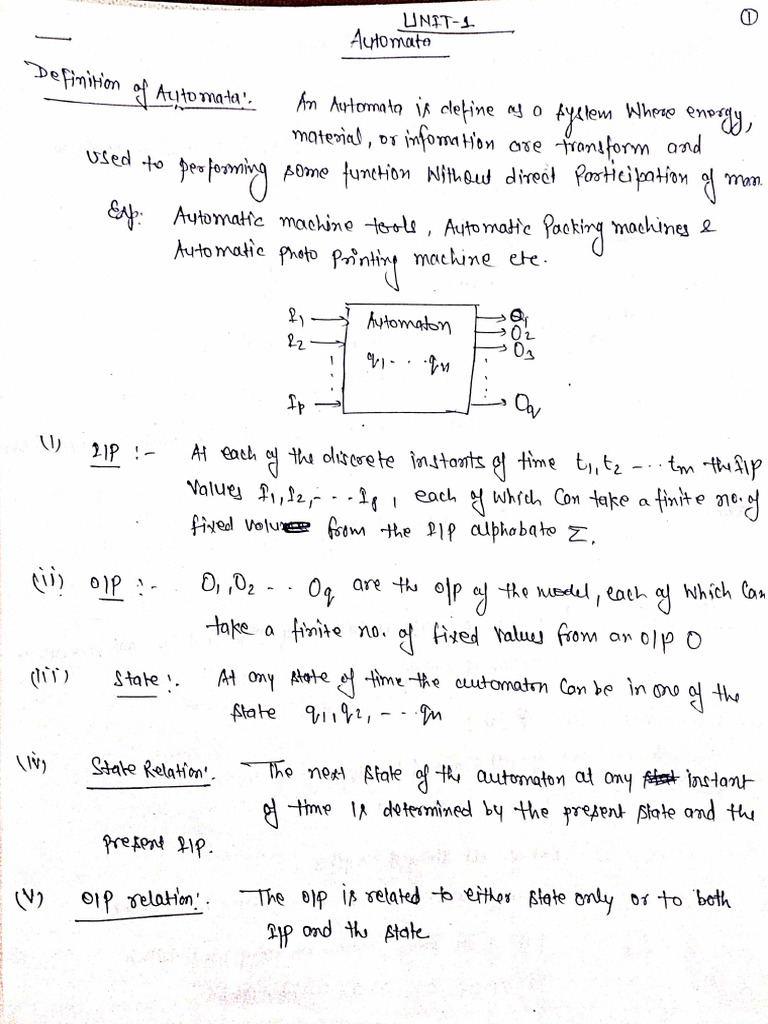 ①
UNIT-1
Automata
Definition of Automata:. An Automata is define as a system Where energy,
material, or infomation are transform and
used to performing some function Without direct Participation of man.
Exp: Automatic machine tools, Automatic Packing machines &
Automatic photo Printing machine etc.
I1 Automaton O1
I2 q1 - . . . qn O2
O3
Ip Oq
(i) I/P :- At each of the discrete instants of time t1, t2 - ... tm the I/P
Values I1, I2, - . . . Ip, each of which Can take a finite no. of
fixed value from the I/P alphabate Σ.
(ii) O/P :- O1, O2 - . . Oq are the o/p of the model, each of which Can
take a finite no. of fixed values from an o/p O
(iii) State :. At any state of time the automaton Can be in one of the
state q1, q2, - . . . qn
(iv) State Relation:. The next state of the automaton at any instant
of time is determined by the present state and the
present I/P.
(v) O/P relation:. The o/p is related to either state only or to both
I/p and the state